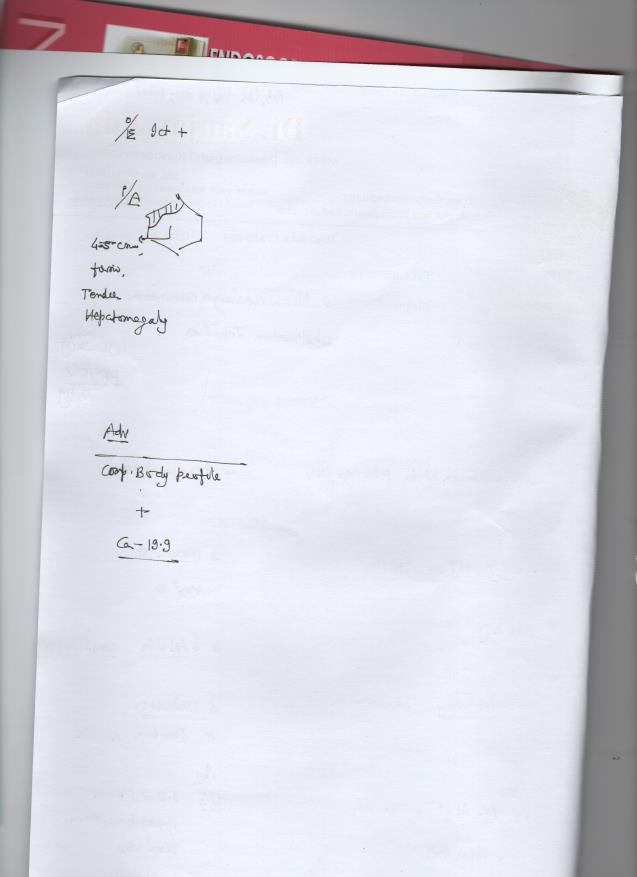 O/E Ict +
P/A
4-5 cm
firm,
Tender
Hepatomegaly
Adv
Comp. Body profile
+
Ca - 19.9